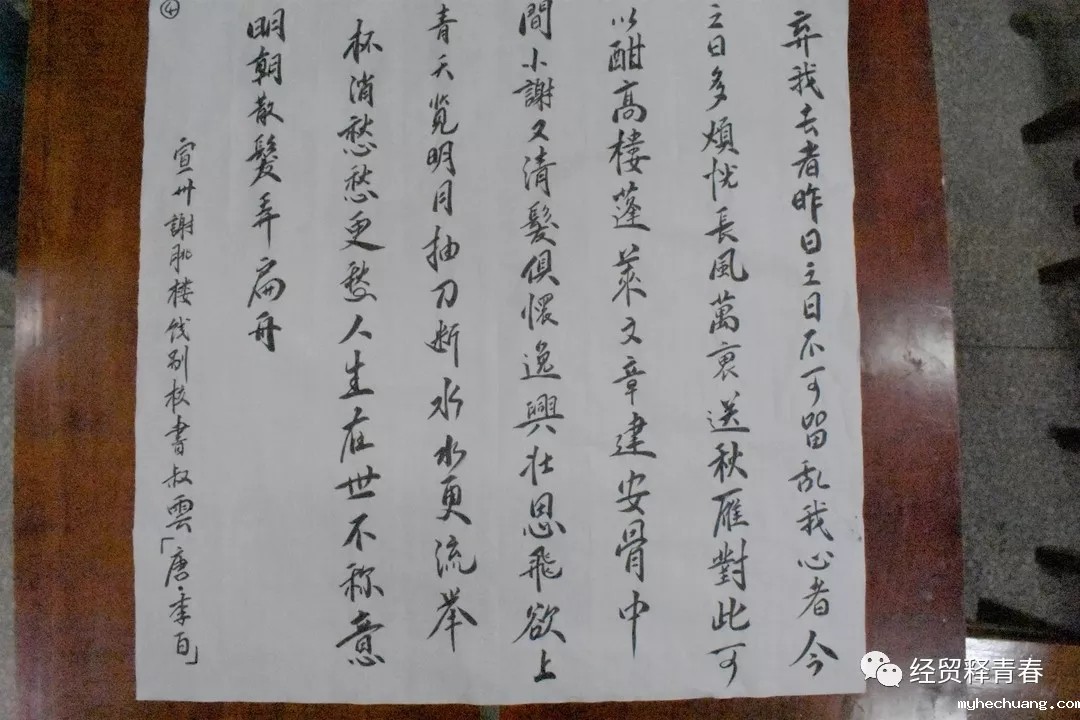 弃我去者昨日之日不可留乱我心者今
之日多煩忧長風萬裏送秋雁對此可
以酣高樓蓬萊文章建安骨中
間小謝又清髮俱懷逸興壮思飛欲上
青天览明月抽刀断水水更流举
杯消愁愁更愁人生在世不称意
明朝散髮弄扁舟
宣州謝朓楼饯别校書叔雲「唐·李白」
④
经贸释青春
myhechuang.com